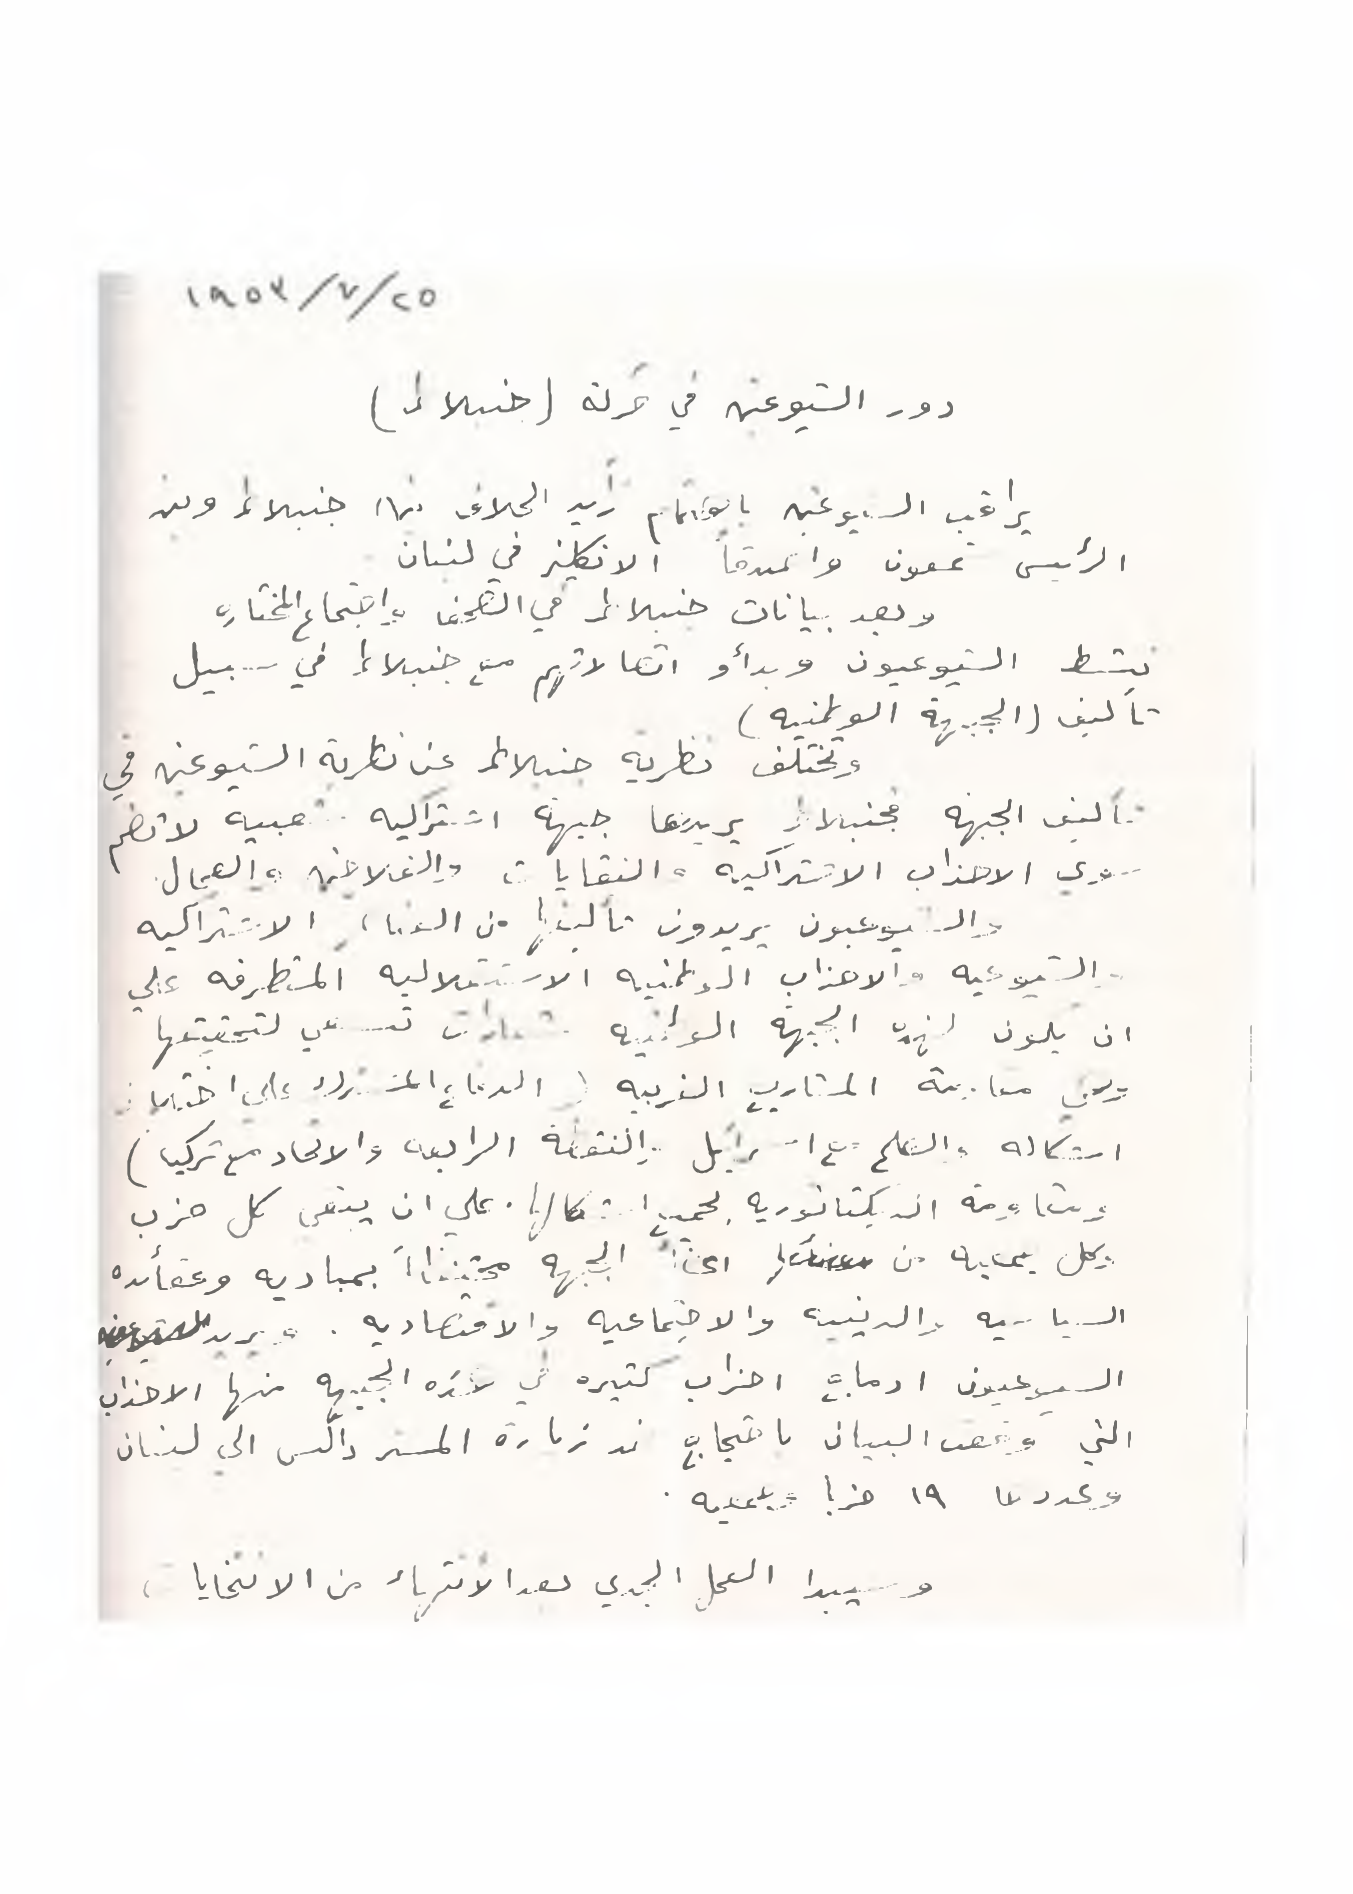 ١٩٥٣/٧/٢٥
دور الشيوعين في حركة (جنبلاط)
يراقب الشيوعين باهتمام تزايد الخلاف بين جنبلاط وبين
الرئيس شمعون واصدقاء الانكليز في لبنان
وبعد بيانات جنبلاط في الصحف واجتماع المختاره
نشط الشيوعيون وبدأو اتصالاتهم مع جنبلاط في سبيل
تأليف (الجبهة الوطنيه)
وتختلف نظرية جنبلاط عن نظرية الشيوعين في
تأليف الجبهه فجنبلاط يريدها جبهة اشتراكيه شعبيه لا تضم
سوى الاحزاب الاشتراكيه والنقابات والفلاحين والعمال
والشيوعيون يريدون تأليفها من الاشتراكيه
والشيوعيه والاحزاب الوطنيه الاستقلاليه المتطرفه على
ان يكون لهذه الجبهة الوطنيه شعارات تسعى لتحقيقها
وهي مقاومة المشاريع الغربيه (الدفاع المشترك على اختلاف
اشكاله والصلح مع اسرائيل والنقطة الرابعه والاتحاد مع تركيا)
ومقاومة الديكتاتوريه بجميع اشكالها. على ان يبقى كل حزب
وكل من الجبهه محتفظاً بمباديه وعقائده
السياسيه والدينيه والاجتماعيه والاقتصاديه . ويريد
الشيوعيون ادماج احزاب كثيره في هذه الجبهه منها الاحزاب
التي وقعت البيان باحتجاج ضد زيارة المستر دالس الى لبنان
وعددها ١٩ حزبا وجمعيه .
وسيبدا العمل الجدي بعد الأنتهاء من الانتخابات